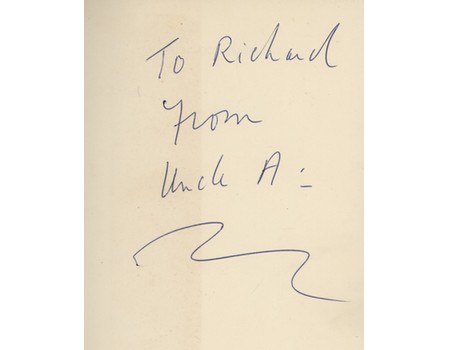 To Richard
From
Uncle A:-